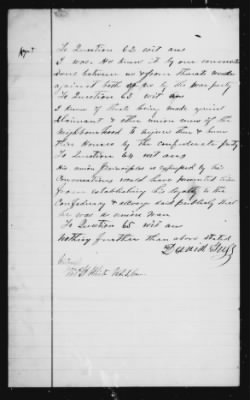 To Question 62 wit ans
I was. He knew it by our conversa
tions between us & from threats made
against both of us by the war party
To Question 63 wit ans
I knew of threats being made against
Claimant & other union men of the
neighbourhood to injure them & burn
their Houses by the confederate party
To Question 64 wit ans
His union principles as expressed by his
Conversations would have prevented him
from establishing his loyalty to the
Confederacy & always said publicly that
he was a union man
To Question 65 wit ans
Nothing further than above stated
David